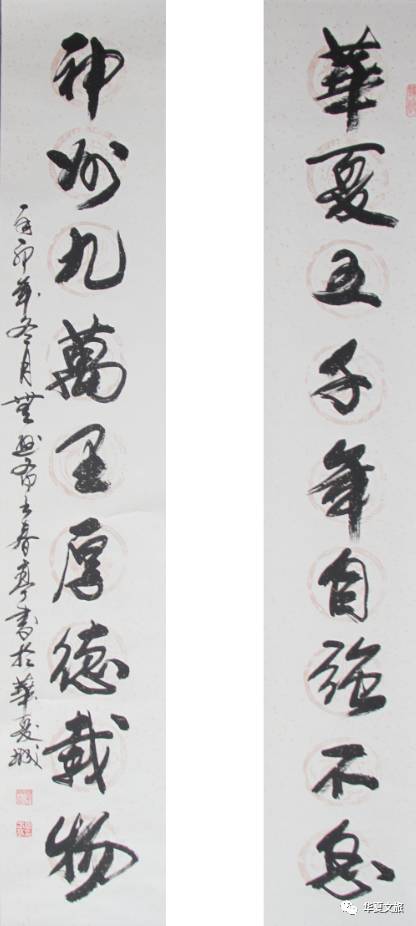 華夏五千年自強不息
神州九萬里厚德載物
卯年冬月春亭書於華夏城
华夏文旅